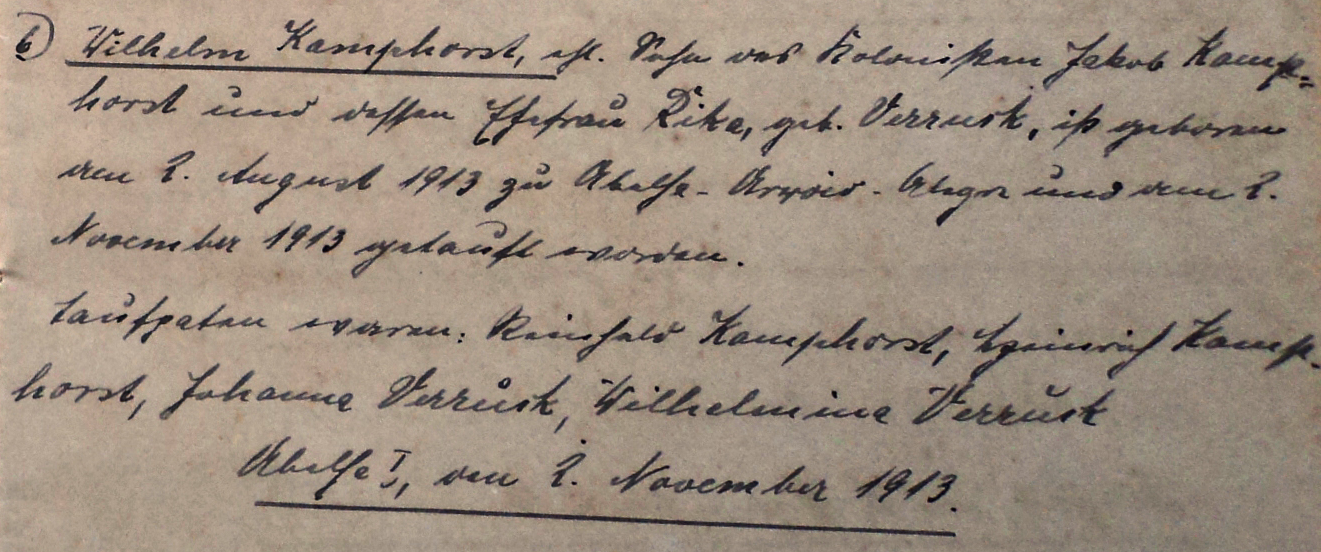 6) Wilhelm Kamphorst, ehl. Sohn des Kolonisten Jakob Kamp=
horst und dessen Ehefrau Rika, geb. Verrusk, ist geboren
den 2. August 1913 zu und den 2.
November 1913 getauft worden.
Taufpaten waren: Reinhold Kamphorst, Heinrich Kamp-
horst, Johanna Verrusk, Wilhelmina Verrusk
den 2. November 1913.